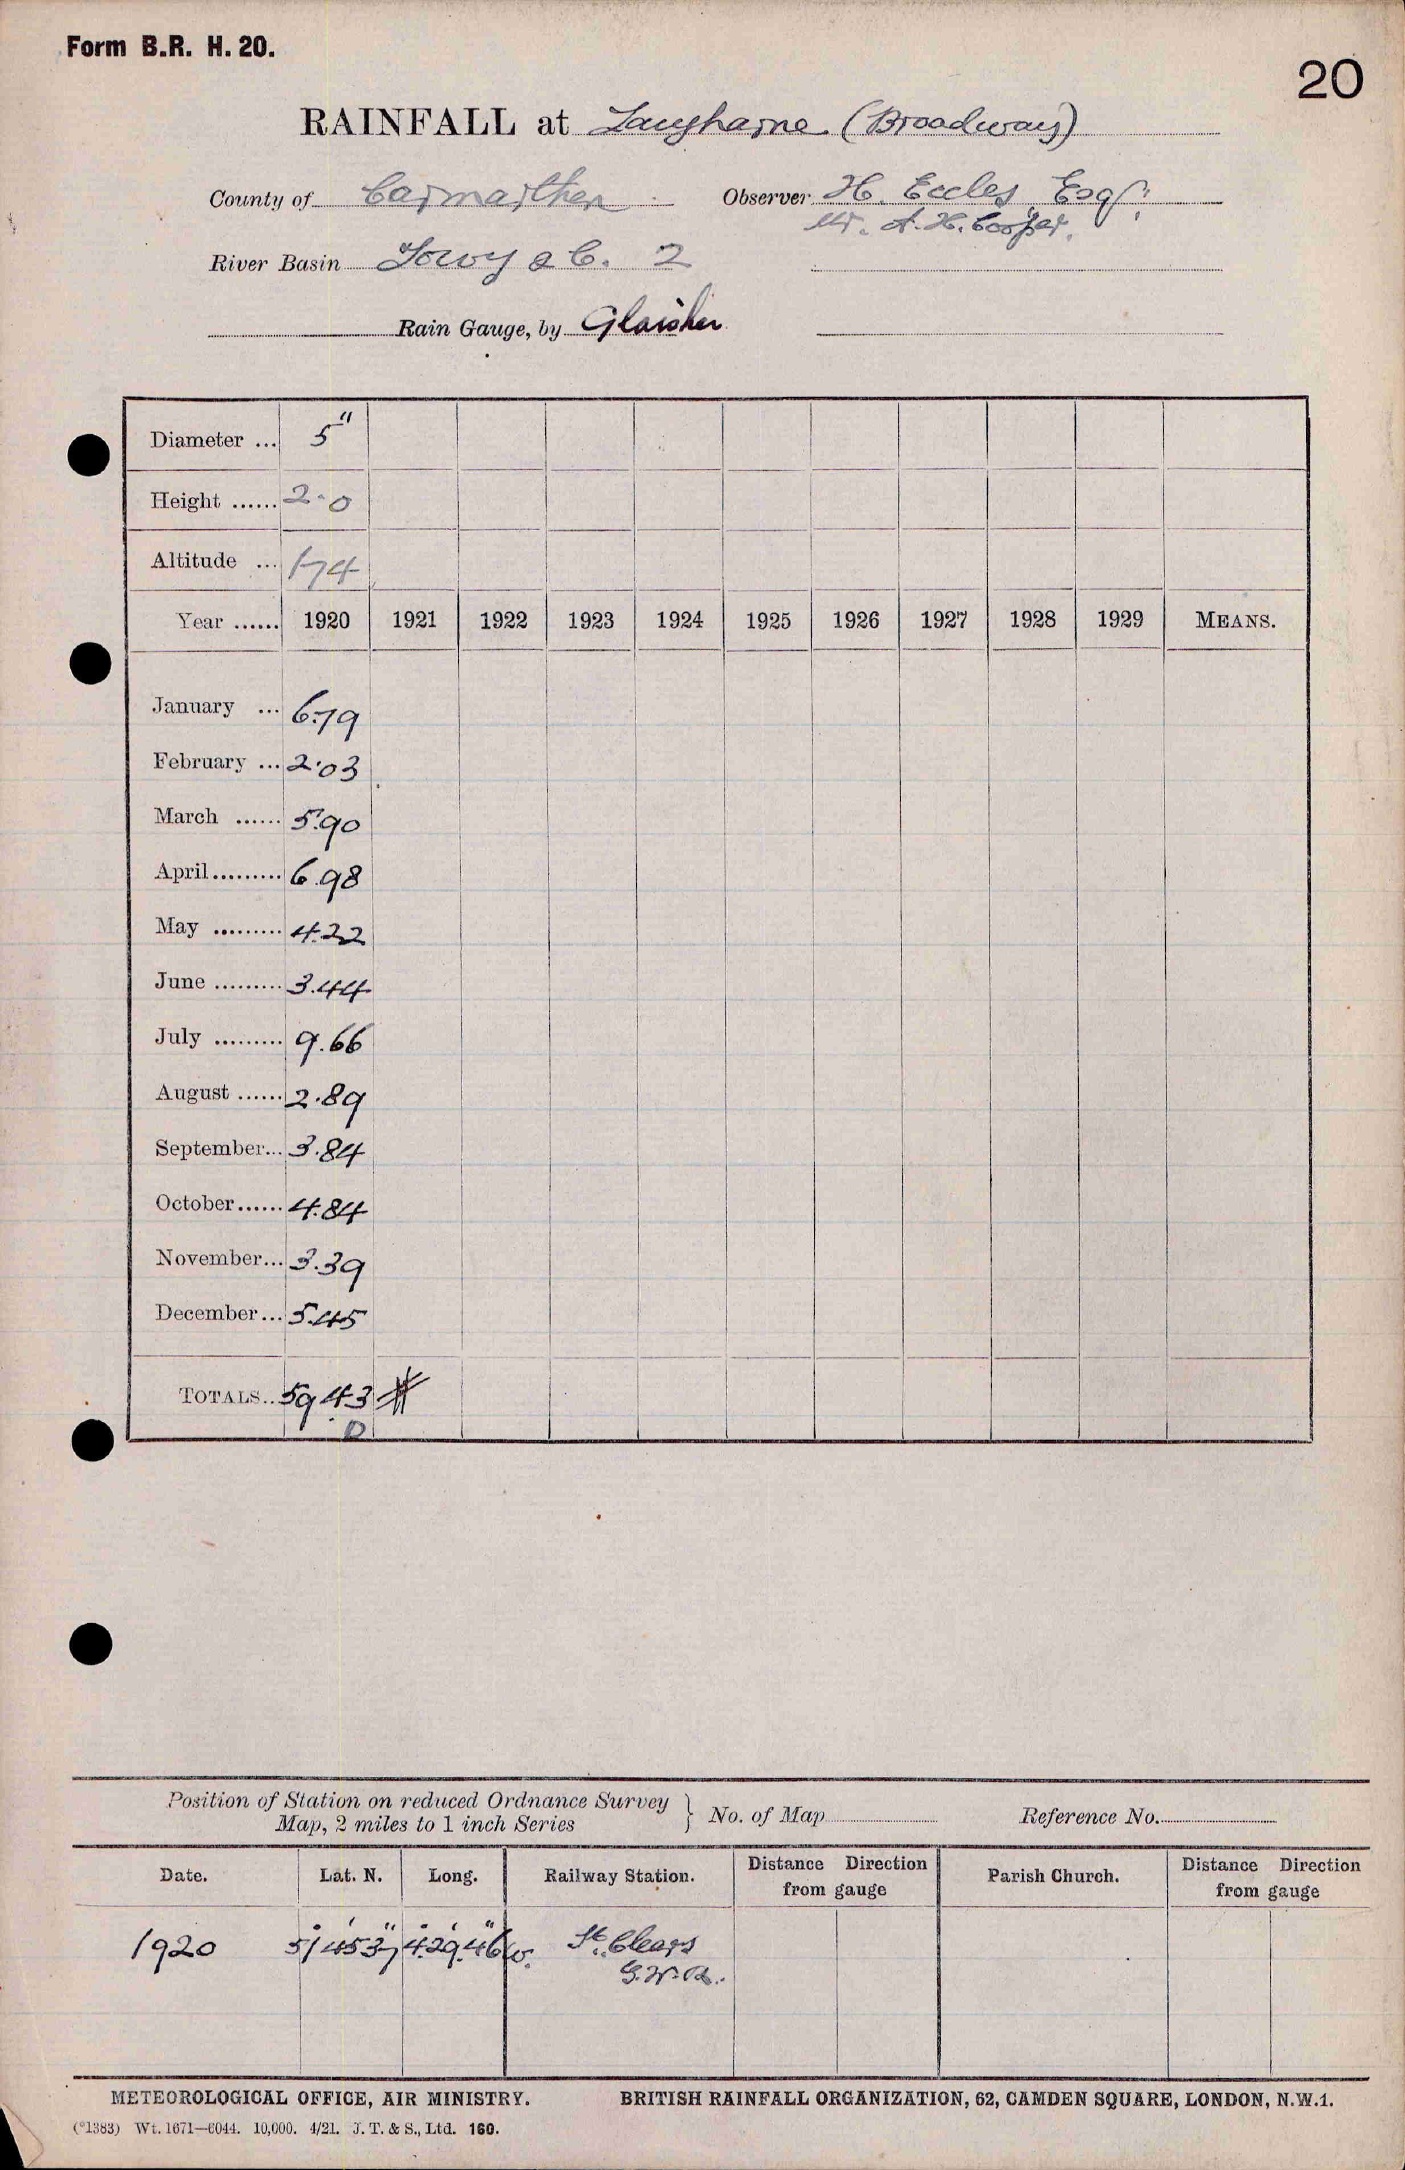 Form B.R. H. 20.
20
RAINFALL at Laugharne (Broadway)
County of Carmarthen Observer H. Eccles, Esq.
Mr. A. H. Cooper.
River Basin Towy & C. 2
Rain Gauge, by Glaisher
Diameter ... 5"
Height ...... 2·0
Altitude ... 174
Year ...... 1920 1921 1922 1923 1924 1925 1926 1927 1928 1929 MEANS.
January ... 6.79
February ... 2.03
March ...... 5.90
April ......... 6.98
May ......... 4.22
June ......... 3.44
July ......... 9.66
August ...... 2.89
September... 3.84
October ...... 4.84
November... 3.39
December... 5.45
TOTALS.. 59.43 #
D
Position of Station on reduced Ordnance Survey
Map, 2 miles to 1 inch Series } No. of Map Reference No.
Date. Lat. N. Long. Railway Station. Distance Direction from gauge Parish Church. Distance Direction from gauge
1920 51° 45' 37" 4° 29' 46" W. St. Clears
G.W.R.
METEOROLOGICAL OFFICE, AIR MINISTRY. BRITISH RAINFALL ORGANIZATION, 62, CAMDEN SQUARE, LONDON, N.W.1.
(*1383) Wt. 1671—6044. 10,000. 4/21. J. T. & S., Ltd. 160.